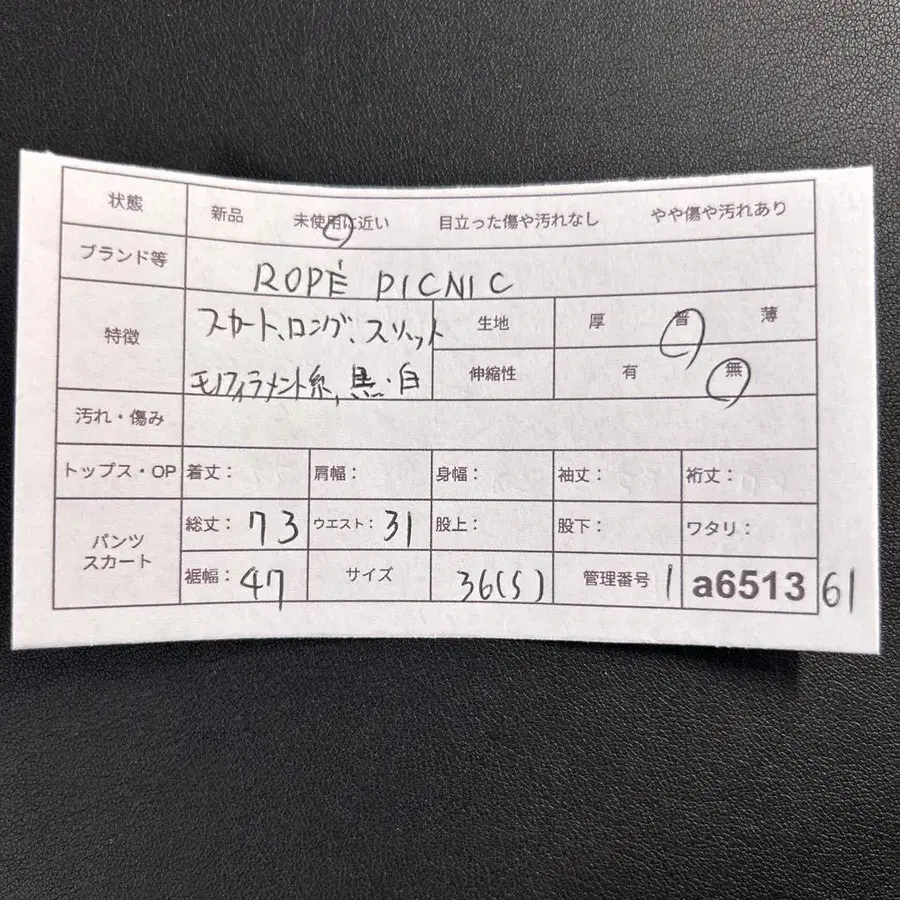 状態 新品 未使用に近い 目立った傷や汚れなし やや傷や汚れあり
ブランド等 ROPÉ PICNIC
特徴 スカート、ロング、スリット 生地 厚 普 薄
モノフィラメント糸、黒・白 伸縮性 有 無
汚れ・傷み
トップス・OP 着丈： 肩幅： 身幅： 袖丈： 裄丈：
パンツ スカート 総丈： 73 ウエスト： 31 股上： 股下： ワタリ：
裾幅： 47 サイズ 36(S) 管理番号 1 a6513 61